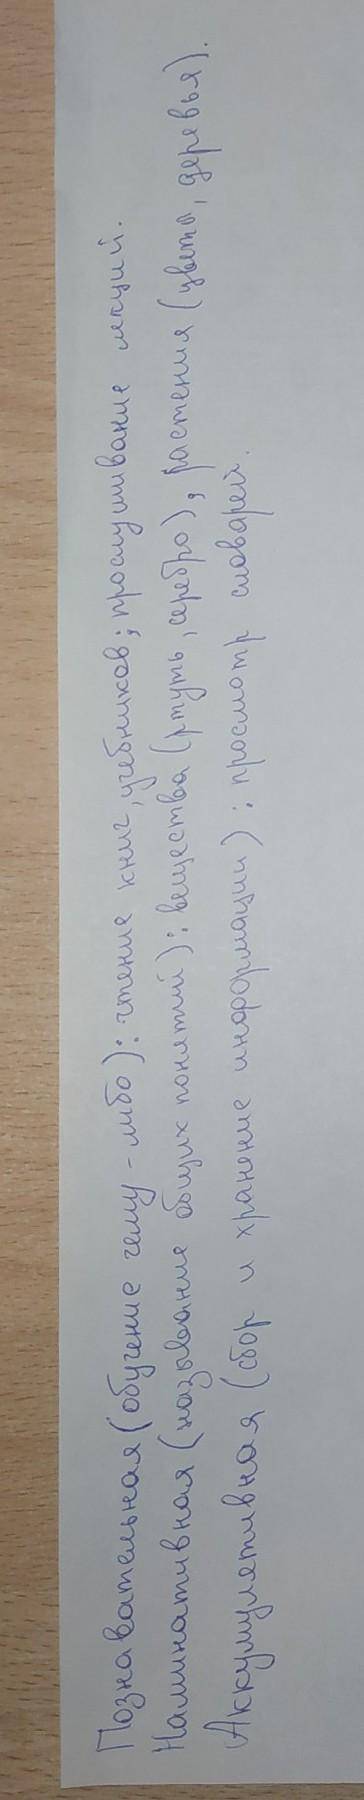 Познавательная (обучение чему-либо): чтение книг, учебников; прослушивание лекций.
Наминативная (называние общих понятий): вещества (ртуть, серебро), растения (цветы, деревья).
Аккумулятивная (сбор и хранение информации): просмотр словарей.